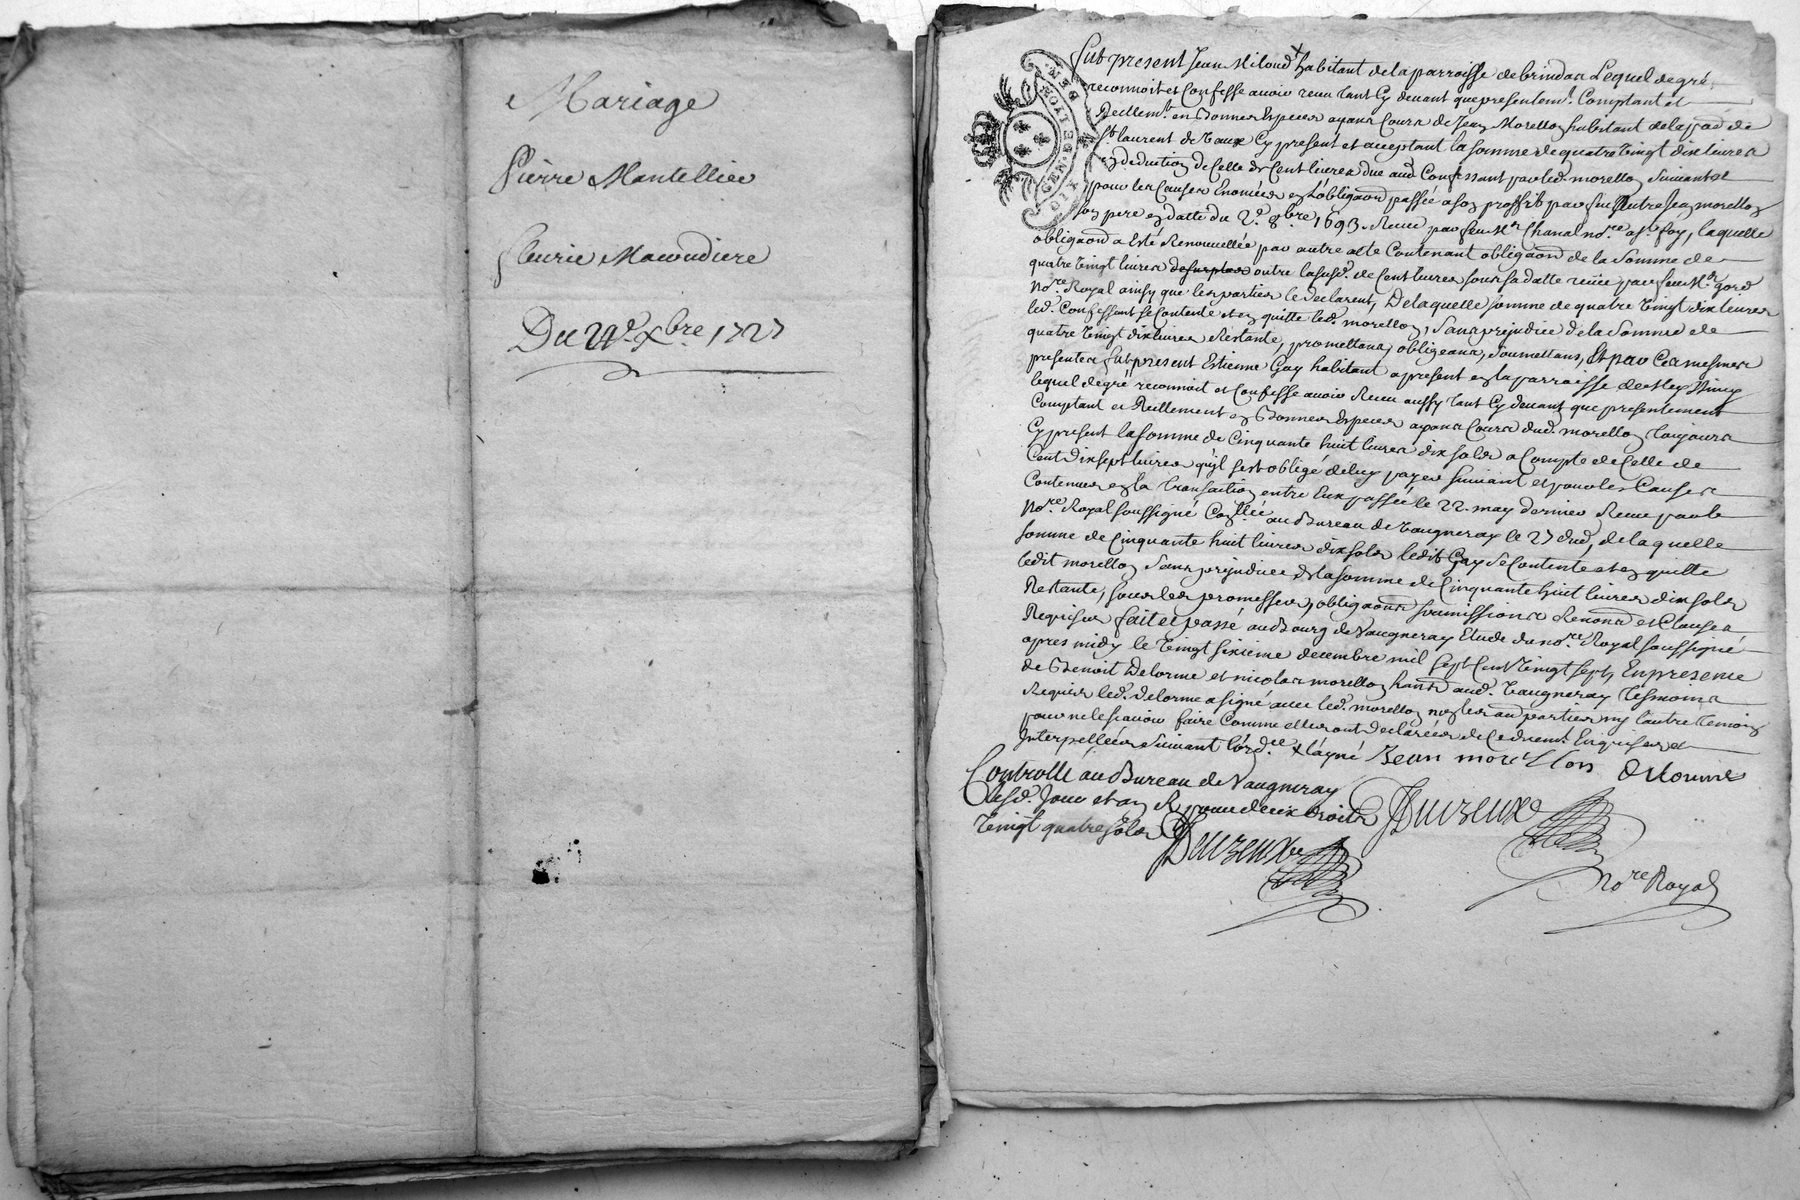 Mariage
Pierre Mantellier
fleurie
Du 29e. Xbre 1727
GEN. DE LYON
fut present Jean habitant de la parroisse de brindas Lequel de gré,
reconnoit et Confesse avoir receu tant Cy devant que presentemt. Comptant et
Reellemt. en Bonnes Especes ayans Cours de Jean Morellon habitant de la pad de
St. laurent de Vaux Cy present et acceptant la somme de quatre Vingt dix livres
en deduction de Celle de Cent livres due aud Confessant par led. morellon suivant et
pour les Causes Enoncées en L'obligaon passée a son proffit par feu autre Jean morellon
son pere en datte du 2e. 8bre 1693. Receu par feu Mr. Chanal nore. a st. foy, laquelle
obligaon a Esté Renouvellée par autre acte Contenant obligaon de la Somme de
quatre Vingt livres outre la susd. de Cent livres sous sa datte receu par feu Mr. gord
Nore. Royal ainsy que les parties le declarent, De laquelle somme de quatre Vingt dix livres
led. Confessant se Contente et en quitte led. morellon, sans prejudice de la Somme de
quatre Vingt dix livres Restante, promettans, obligeans, soumettans, Et par Ces mesmes
presentes fut present Estienne Gay habitant a present en la parroisse de
lequel de gré reconnoit et Confesse avoir Receu aussy tant Cy devant que presentement
Comptant et Reellement en Bonnes Especes ayans Cours dud. morellon toujours
Cy present la somme de Cinquante huit livres dix sols a Compte de Celle de
Cent Dix sept livres qu'il s'est obligé de luy payer suivant et pour les Causes
Contenues en la transaction entre Eux passée, le 22. may dernier Receu par le
Nore. Royal soussigné Conllée au Bureau de Vaugneray le 27 dud, de laquelle
somme de Cinquante huit livres dix sols ledit Gay se Contente et en quitte
ledit morellon sans prejudice de la somme de Cinquante huit livres dix sols
Restante, sous les promesses, obligaons soumissions Renons et Clauses
Requises fait et passé au Bourg de Vaugneray Etude du nore. Royal soussigné
apres midy le Vingt sixieme decembre mil sept Cent Vingt sept, En presence
de Benoit Delorme et nicolas morellon hants aud. Vaugneray tesmoins
Requis led. delorme a signé avec led. morellon non les aud parties ny l'autre temoin
pour ne le scavoir faire Comme elles ont declarées de Ce duemt. Enquises et
Interpellées suivant l'ordce Jean morellon Delorme
Controllé au Bureau de Vaugneray
lesd. Jour et an R pour deux droits
Vingt quatre sols
nore Royal